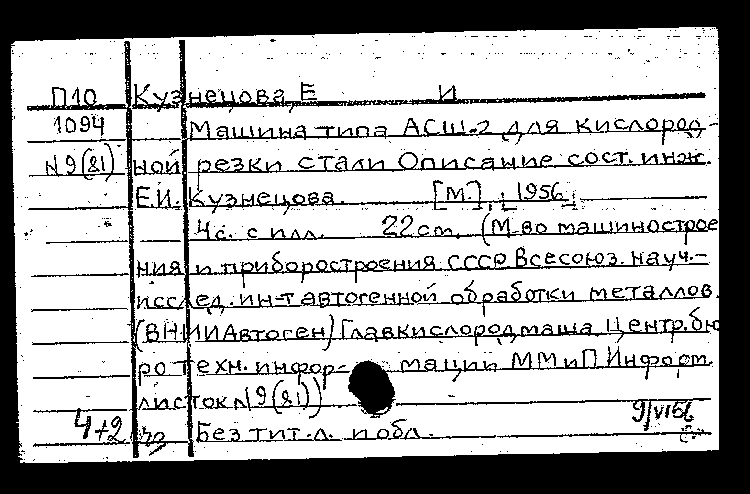 П10 Кузнецова, Е И
1094 Машина типа АСШ-2 для кислород-
N9(81) ной резки стали Описание сост. инж.
Е.И. Кузнецова. [М.], [1956]
4с. с илл. 22 cm. (М-во машинострое
ния и приборостроения СССР Всесоюз. науч.-
исслед. ин-т автогенной обработки металлов.
(ВНИИАвтоген) Главкислородмаша Центр. бю
ро техн. инфор- мации ММиП. Информ.
листок N9(81))
4+2 Без тит. л. и обл. 9/VI56